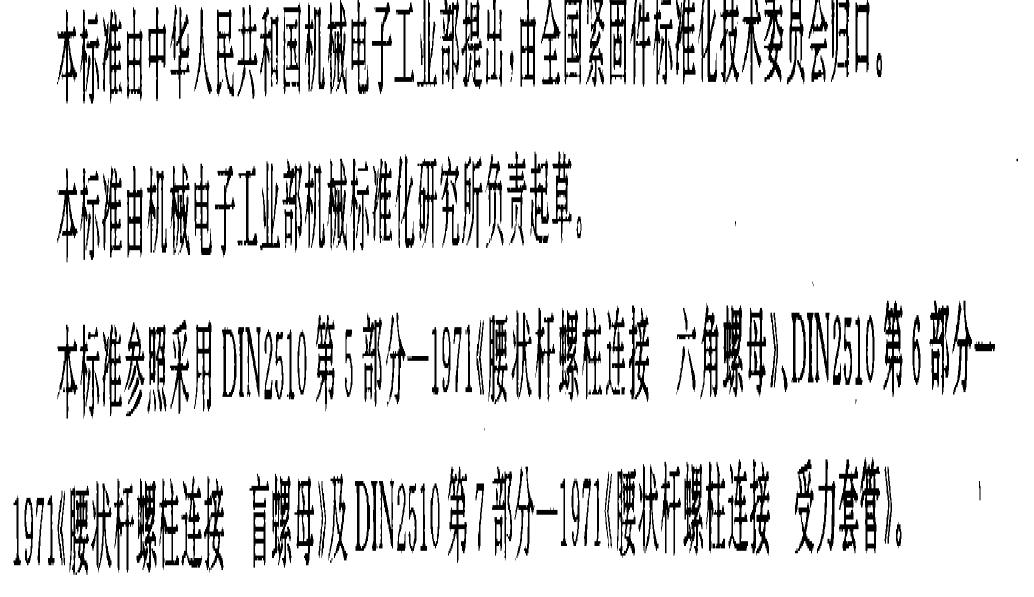 本标准由中华人民共和国机械电子工业部提出,由全国紧固件标准化技术委员会归口。
本标准由机械电子工业部机械标准化研究所负责起草。
本标准参照采用 DIN2510 第 5 部分—1971《腰状杆螺柱连接 六角螺母》、DIN2510 第 6 部分—
1971《腰状杆螺柱连接 盲螺母》及 DIN2510 第 7 部分—1971《腰状杆螺柱连接 受力套管》。